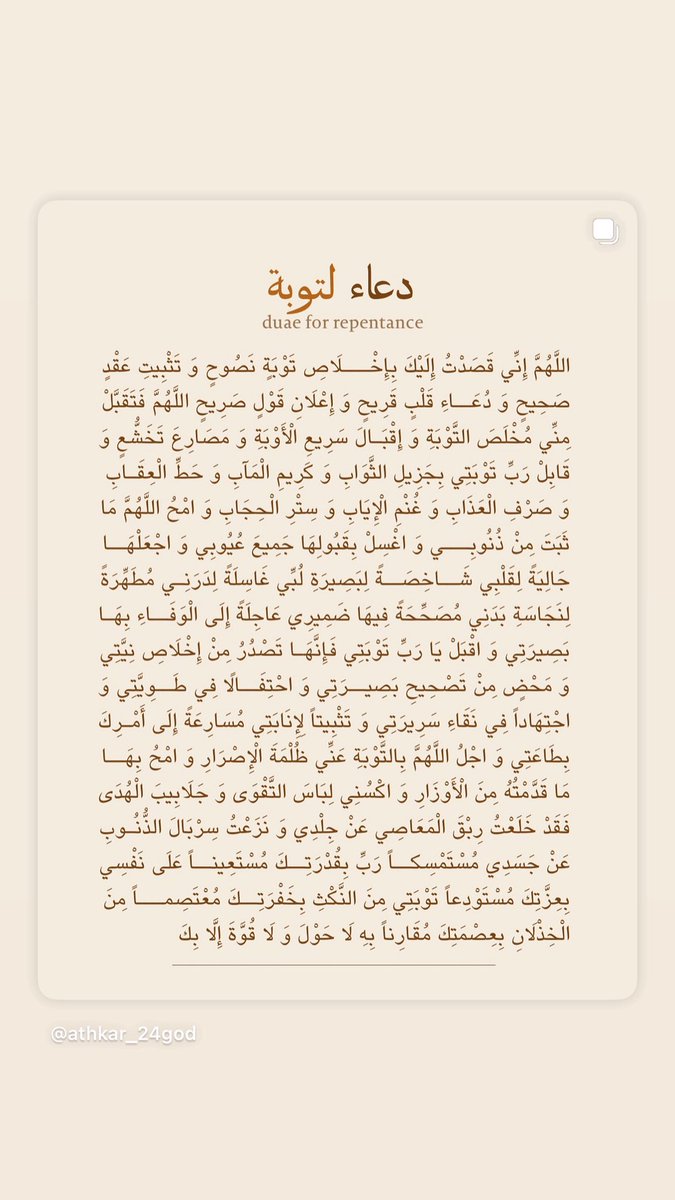 دعاء لتوبة
duae for repentance
اللَّهُمَّ إِنِّي قَصَدْتُ إِلَيْكَ بِإِخْـــــلَاصِ تَوْبَةٍ نَصُوحٍ وَ تَثْبِيتِ عَقْدٍ
صَحِيحٍ وَ دُعَـــاءِ قَلْبٍ قَرِيحٍ وَ إِعْلَانِ قَوْلٍ صَرِيحٍ اللَّهُمَّ فَتَقَبَّلْ
مِنِّي مُخْلَصَ التَّوْبَةِ وَ إِقْبَــالَ سَرِيعِ الْأَوْبَةِ وَ مَصَارِعَ تَخَشُّعٍ وَ
قَابِلْ رَبِّ تَوْبَتِي بِجَزِيلِ الثَّوَابِ وَ كَرِيمِ الْمَآبِ وَ حَطِّ الْعِقَــابِ
وَ صَرْفِ الْعَذَابِ وَ غُنْمِ الْإِيَابِ وَ سِتْرِ الْحِجَابِ وَ امْحُ اللَّهُمَّ مَا
ثَبَتَ مِنْ ذُنُوبِـــــي وَ اغْسِلْ بِقَبُولِهَا جَمِيعَ عُيُوبِي وَ اجْعَلْهَـــا
جَالِيَةً لِقَلْبِي شَـــاخِصَـــةً لِبَصِيرَةِ لُبِّي غَاسِلَةً لِدَرَنِــي مُطَهِّرَةً
لِنَجَاسَةِ بَدَنِي مُصَحِّحَةً فِيهَا ضَمِيرِي عَاجِلَةً إِلَى الْوَفَـــاءِ بِهَـا
بَصِيرَتِي وَ اقْبَلْ يَا رَبِّ تَوْبَتِي فَإِنَّهَــا تَصْدُرُ مِنْ إِخْلَاصِ نِيَّتِي
وَ مَحْضٍ مِنْ تَصْحِيحِ بَصِيــرَتِي وَ احْتِفَــالًا فِي طَــوِيَّتِي وَ
اجْتِهَاداً فِي نَقَاءِ سَرِيرَتِي وَ تَثْبِيتاً لِإِنَابَتِي مُسَارِعَةً إِلَى أَمْــرِكَ
بِطَاعَتِي وَ اجْلُ اللَّهُمَّ بِالتَّوْبَةِ عَنِّي ظُلْمَةَ الْإِصْرَارِ وَ امْحُ بِهَـــا
مَا قَدَّمْتُهُ مِنَ الْأَوْزَارِ وَ اكْسُنِي لِبَاسَ التَّقْوَى وَ جَلَابِيبَ الْهُدَى
فَقَدْ خَلَعْتُ رِبْقَ الْمَعَاصِي عَنْ جِلْدِي وَ نَزَعْتُ سِرْبَالَ الذُّنُــوبِ
عَنْ جَسَدِي مُسْتَمْسِكــاً رَبِّ بِقُدْرَتِــكَ مُسْتَعِينــاً عَلَى نَفْسِي
بِعِزَّتِكَ مُسْتَوْدِعاً تَوْبَتِي مِنَ النَّكْثِ بِخَفْرَتِــكَ مُعْتَصِمـــاً مِنَ
الْخِذْلَانِ بِعِصْمَتِكَ مُقَارِناً بِهِ لَا حَوْلَ وَ لَا قُوَّةَ إِلَّا بِكَ
@athkar_24god